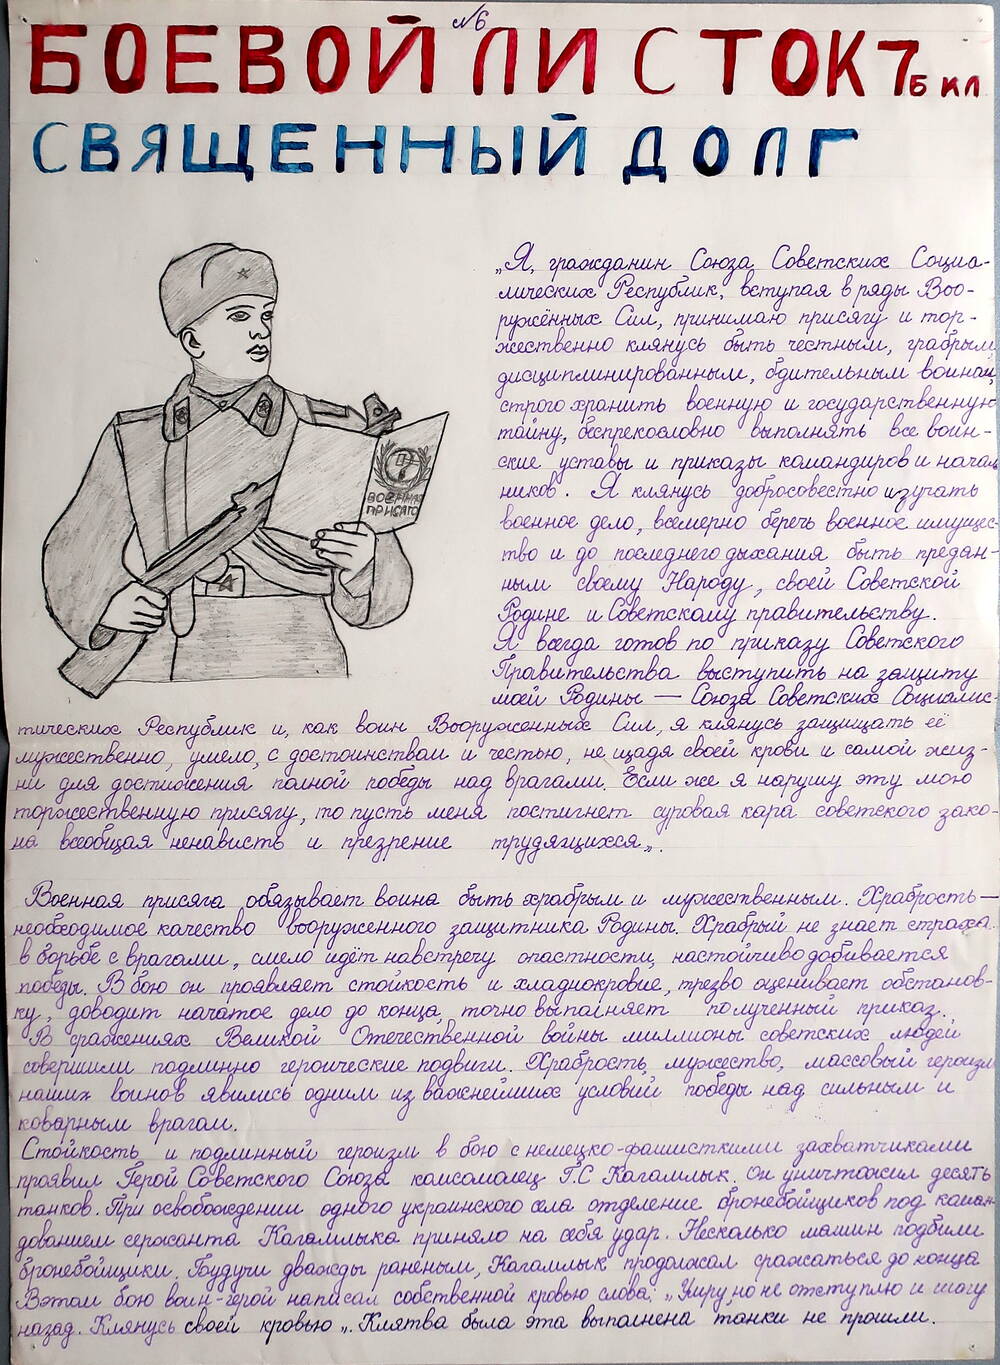 №6
БОЕВОЙ ЛИСТОК 7Б КЛ
СВЯЩЕННЫЙ ДОЛГ
„Я, гражданин Союза Советских Социа-
лических Республик, вступая в ряды Воо-
ружённых Сил, принимаю присягу и тор-
жественно клянусь быть честным, храбрым
дисциплинированным, бдительным воином,
строго хранить военную и государственную
тайну, беспрекословно выполнять все воин-
ские уставы и приказы командиров и началь
ников. Я клянусь добросовестно изучать
военное дело, всемерно беречь военное имущес-
тво и до последнего дыхания быть предан-
ным своему Народу, своей Советской
Родине и Советскому правительству.
Я всегда готов по приказу Советского
Правительства выступить на защиту
моей Родины — Союза Советских Социалис-
ВОЕННАЯ
ПРИСЯГА
тических Республик и, как воин Вооруженных Сил, я клянусь защищать её
мужественно, умело, с достоинством и честью, не щадя своей крови и самой жиз-
ни для достижения полной победы над врагами. Если же я нарушу эту мою
торжественную присягу, то пусть меня постигнет суровая кара советского зако-
на всеобщая ненависть и презрение трудящихся„.
Военная присяга обязывает воина быть храбрым и мужественным. Храбрость —
необходимое качество вооруженного защитника Родины. Храбрый не знает страха
в борьбе с врагами, смело идёт навстречу опастности, настойчиво добивается
победы. В бою он проявляет стойкость и хладнокровие, трезво оценивает обстанов-
ку, доводит начатое дело до конца, точно выполняет полученный приказ.
В сражениях Великой Отечественной войны миллионы советских людей
совершили подлинно героические подвиги. Храбрость, мужество, массовый героизм
наших воинов явились одним из важнейших условий победы над сильным и
коварным врагом.
Стойкость и подлинный героизм в бою с немецко-фашисткими захватчиками
проявил Герой Советского Союза комсомолец Г.С Кагамлык. Он уничтожил десять
танков. При освобождении одного украинского села отделение бронебойщиков под коман-
дованием сержанта Кагамлыка приняло на себя удар. Несколько машин подбили
бронебойщики. Будучи дважды раненым, Кагамлык продолжал сражаться до конца
В этом бою воин-герой написал собственной кровью слова: „Умру, но не отступлю и шагу
назад. Клянусь своей кровью„. Клятва была эта выполнена танки не прошли.